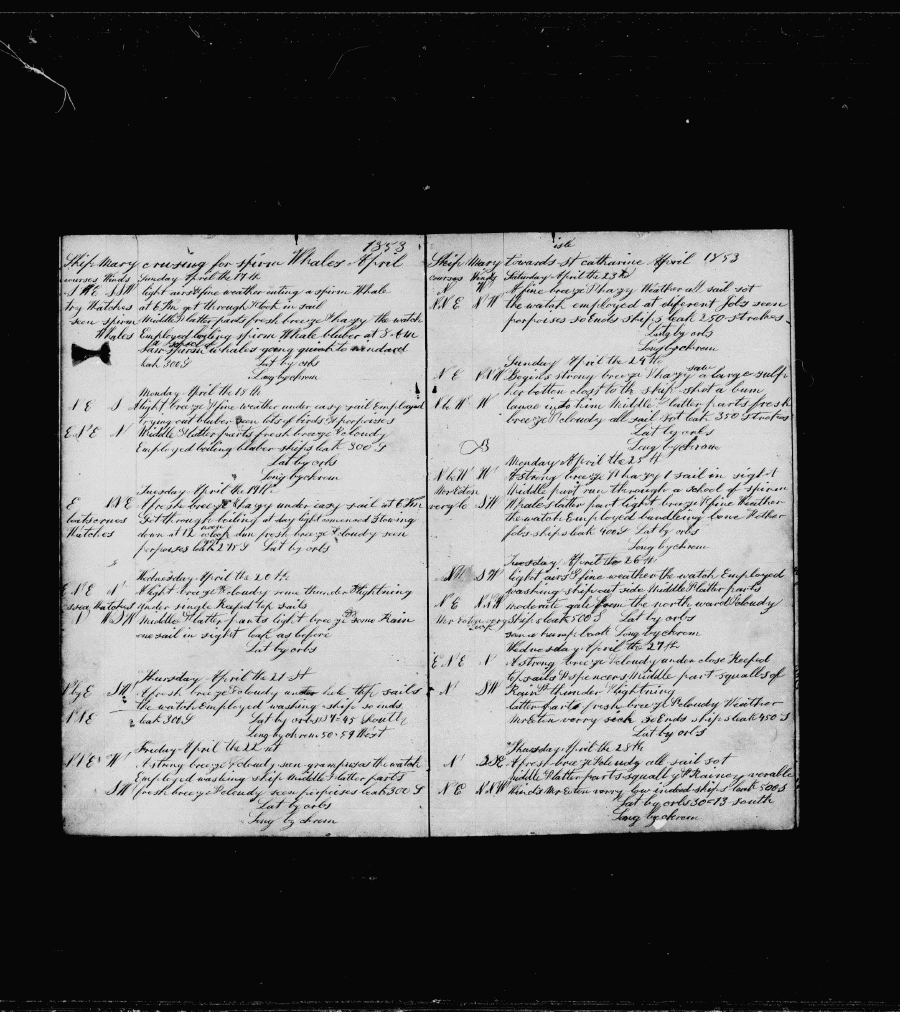 1853
Ship Mary crusing for spirm Whales April
courses Winds Sunday April the 17th
S W E S S W light airs & fine weather cuting a spirm Whale
try Watches at 6 Pm got through & took in sail
seen spirm Middle & latter parts fresh breeze & hazy the watch
Whales Employed boiling spirm Whale bluber at 8 Am
saw a school of spirm whales going quick to windard
leak 300 S Lat by orbs
Long by chrom
Monday April the 18th
N E S A light breeze & fine weather under easy sail Employed
trying out bluber seen lots of birds & porpoises
E N E N Middle & latter parts fresh breeze & cloudy
Employed boiling bluber ships leak 300 S
Lat by orbs
Long by chrom
Tuesday April the 19th
E N N E A fresh breeze & hazy under easy sail at 6 Pm
boats crues Got through boiling at day light comenced Stowing
Watches down at 12 oclock noon dun fresh breeze & cloudy seen
porpoises leak 275 S Lat by orbs
Wednesday April the 20th
E N E N A light breeze & cloudy some thunder & lightning
Watches under single Reefed top sails
Middle & latter parts light breeze & some Rain
one sail in sight leak as before
Lat by orbs
Thursday April the 21 st
N by E S W A fresh breeze & cloudy under hole top sails
the watch Employed washing ship so ends
N N E leak 300 S Lat by orbs 34-45 South
Long by chrom 50-59 West
Friday April the 22 nt
N N E W A strong breeze & cloudy seen grampuses the watch
Employed washing ship Middle & latter parts
S W fresh breeze & cloudy seen porpoises leak 300 S
Lat by orbs
Long by chrom
isle
Ship Mary towards st catharine April 1853
courses Winds Saturday April the 23th
N W A fine breeze & hazy Weather all sail sot
N N E N W the watch employed at diferent Jobs seen
porpoises so Ends ships leak 250 strokes
Lat by orbs
Long by chrom
Sunday April the 24th
N E N N W Begins strong breeze & hazy saw a large sulp
her botton close to the ship shot a bum
N b W W lance into him Middle & latter parts fresh
breeze & cloudy all sail sot leak 350 Strokes
Lat by orbs
Long by chrom
Monday April the 25 th
N b W W A strong breeze & hazy 1 sail in sight
Mr Eton Middle part run through a school of spirm
very lo S W Whales latter part light breeze & fine Weather
the watch Employed bundleing bone & other
Jobs ship leak 400 S Lat by orbs
Long by chrom
Tuesday April the 26 th
N W S W light airs & fine weather the watch Employed
washing ship out side Middle & latter parts
N E N N W moderate gale from the north ward & cloudy
Mr Eton very sick ship leak 500 S Lat by orbs
saw a hump back Long by chrom
Wednesday April the 27th
E N E N A strong breeze & cloudy under close Reefed
top sails & spencers Middle part squalls of
N S W Rain & thunder & lightning
latter parts fresh breeze & cloudy Weather
Mr Eton verry sick so Ends ships leak 450 S
Lat by orbs
Thursday April the 28th
N A fresh breeze & cloudy all sail sot
Middle & latter parts squally & Rainey verable
N E N N W Winds Mr Eton verry low indeed ships leak 500 S
Lat by orbs 30-13 south
Long by chrom